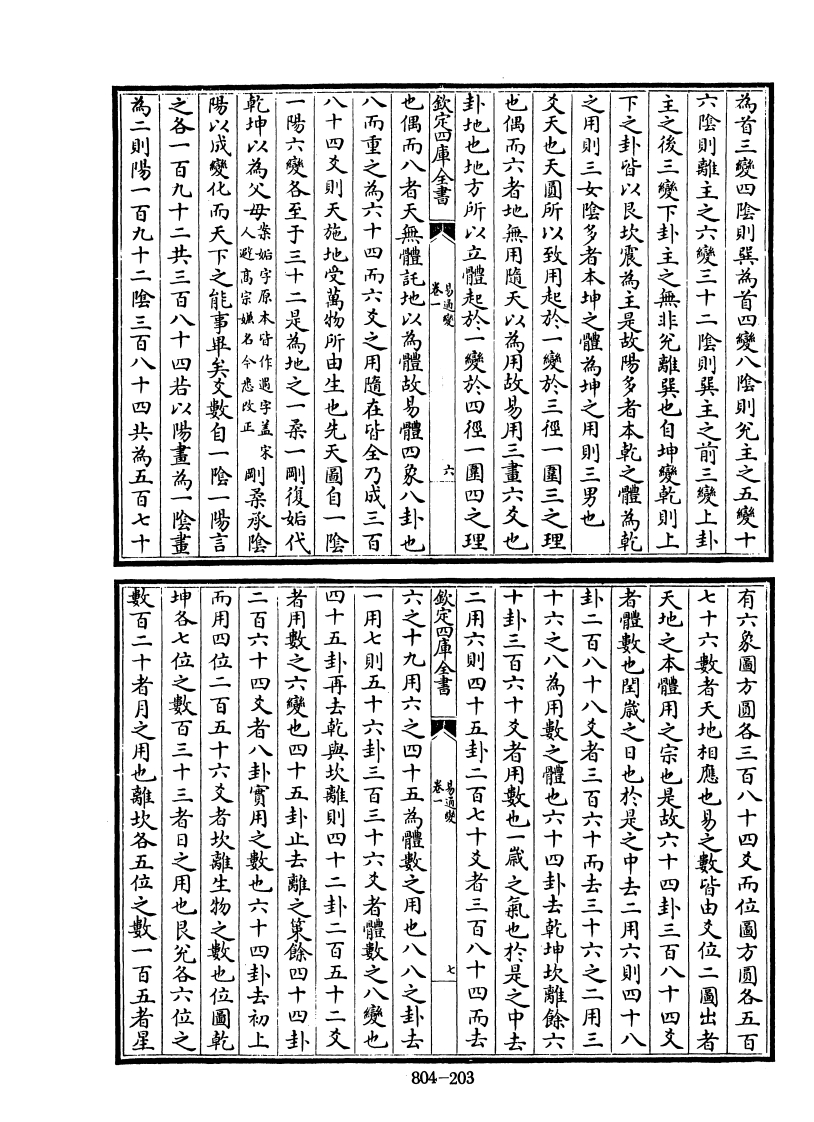 為首三變四陰則巽為首四變八陰則兊主之五變十
六陰則離主之六變三十二陰則巽主之前三變上卦
主之後三變下卦主之無非兊離巽也自坤變乾則上
下之卦皆以艮坎震為主是故陽多者本乾之體為乾
之用則三女陰多者本坤之體為坤之用則三男也
爻天也天圓所以致用起於一變於三徑一圍三之理
也偶而六者地無用隨天以為用故易用三畫六爻也
卦地也地方所以立體起於一變於四徑一圍四之理
欽定四庫全書
易通變
卷一
六
也偶而八者天無體託地以為體故易體四象八卦也
八而重之為六十四而六爻之用隨在皆全乃成三百
八十四爻則天施地受萬物所由生也先天圖自一陰
一陽六變各至于三十二是為地之一柔一剛復姤代
乾坤以為父母案姤字原本皆作遇字盖宋人避高宗嫌名今悉改正剛柔承陰
陽以成變化而天下之能事畢矣爻數自一陰一陽言
之各一百九十二共三百八十四若以陽畫為一陰畫
為二則陽一百九十二陰三百八十四共為五百七十
有六象圖方圓各三百八十四爻而位圖方圓各五百
七十六數者天地相應也易之數皆由爻位二圖出者
天地之本體用之宗也是故六十四卦三百八十四爻
者體數也閏嵗之日也於是之中去二用六則四十八
卦二百八十八爻者三百六十而去三十六之二用三
十六之八為用數之體也六十四卦去乾坤坎離餘六
十卦三百六十爻者用數也一嵗之氣也於是之中去
二用六則四十五卦二百七十爻者三百八十四而去
欽定四庫全書
易通變
卷一
七
六之十九用六之四十五為體數之用也八八之卦去
一用七則五十六卦三百三十六爻者體數之八變也
四十五卦再去乾與坎離則四十二卦二百五十二爻
者用數之六變也四十五卦止去離之策餘四十四卦
二百六十四爻者八卦實用之數也六十四卦去初上
而用四位二百五十六爻者坎離生物之數也位圖乾
坤各七位之數百三十三者日之用也艮兊各六位之
數百二十者月之用也離坎各五位之數一百五者星
804-203